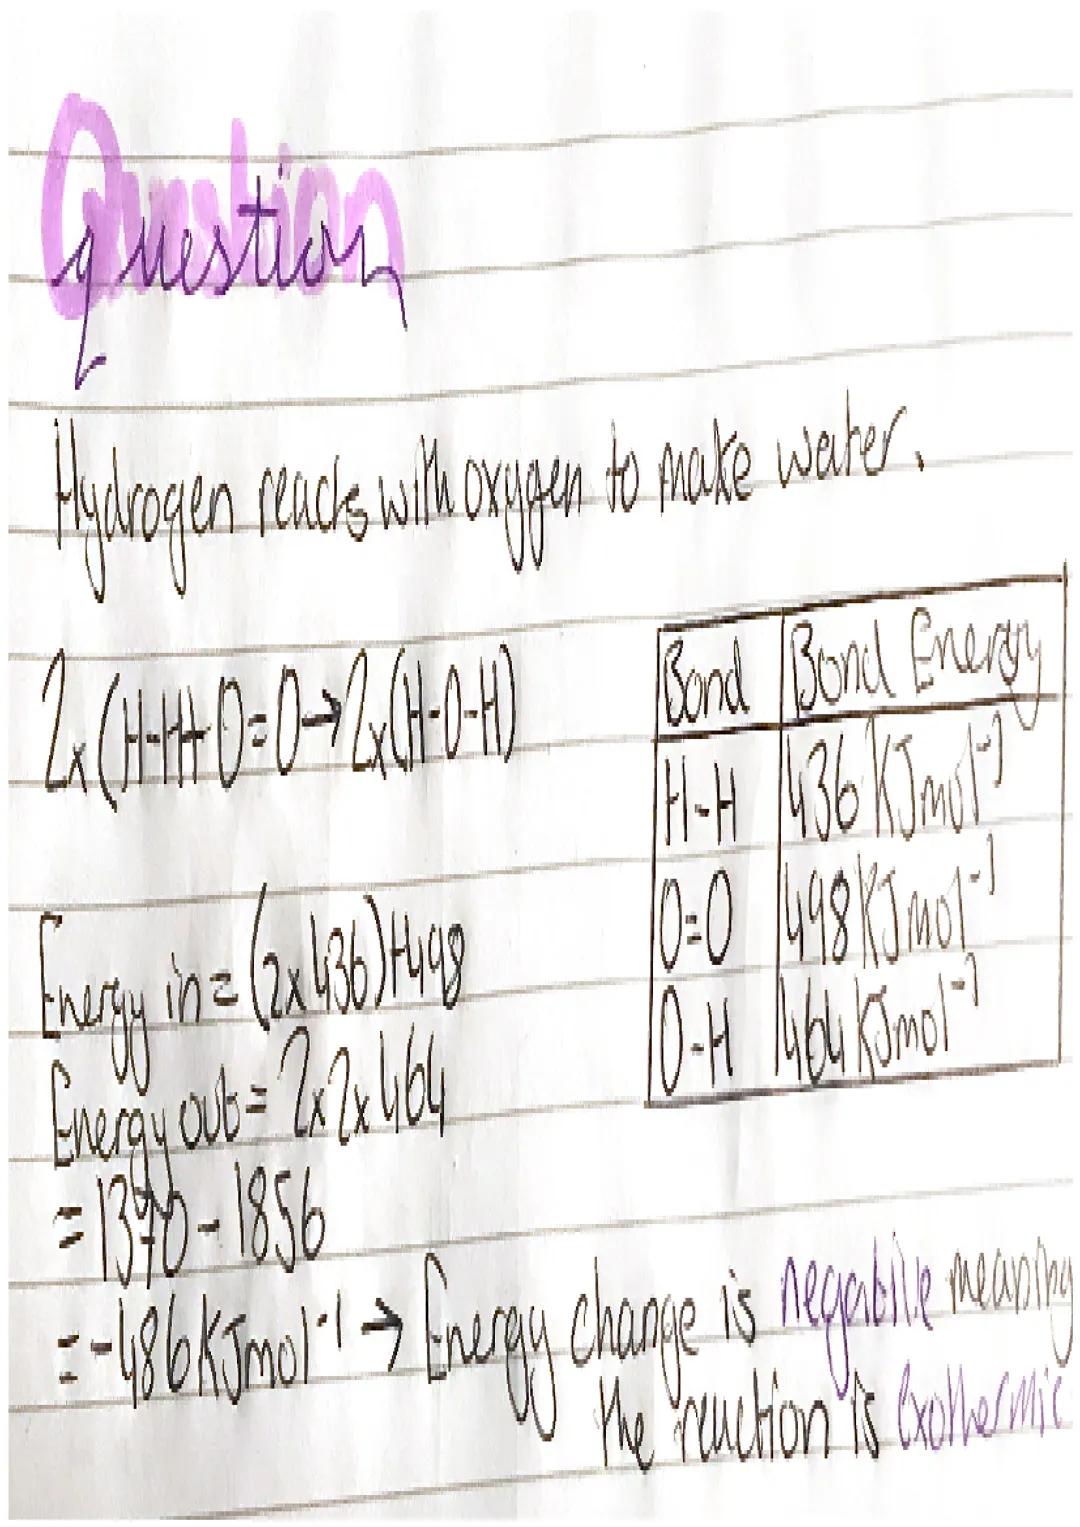 Question
question
Hydrogen reacts with oxygen to make water.
2x(H-H+O=O→2x(H-O-H)
Bond | Bond Energy
H-H | 436 KJmol⁻¹
O=O | 498 KJmol⁻¹
O-H | 464 KJmol⁻¹
Energy in = (2x436)+498
Energy out = 2x2x464
= 1370 - 1856
= -486 KJmol⁻¹ → Energy change is negative meaning
the reaction is exothermic